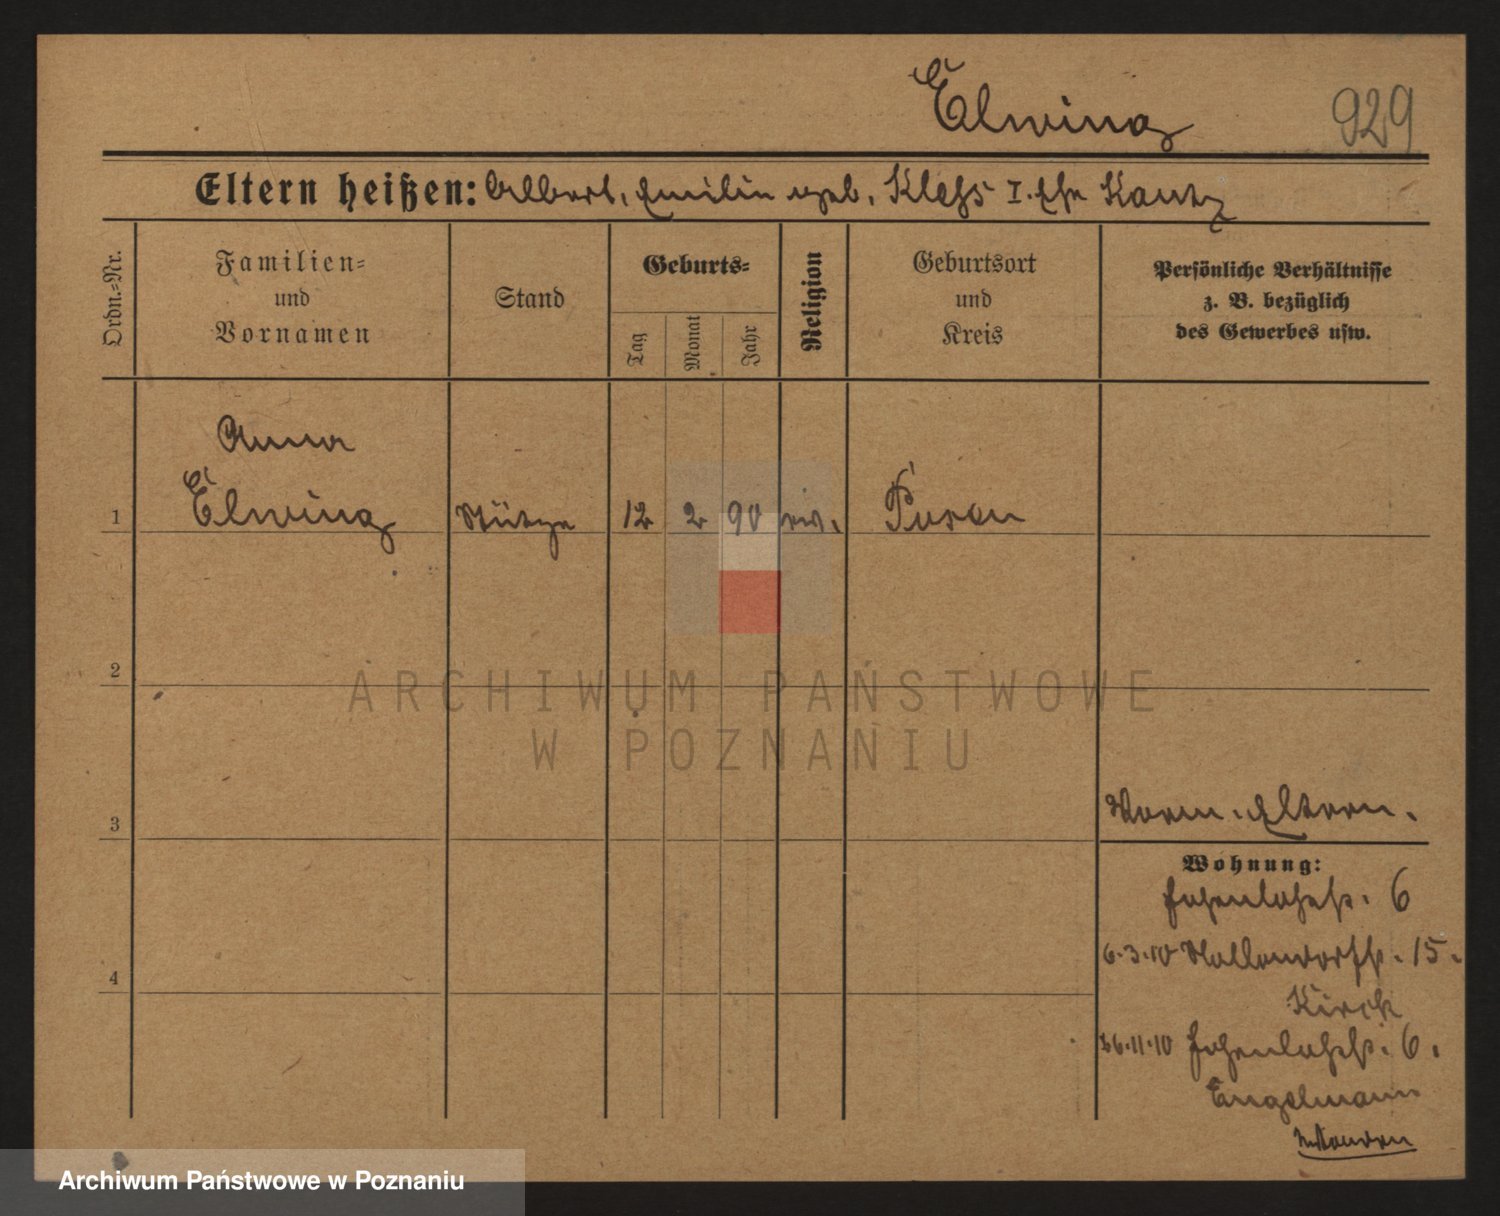 Elwing 929
Eltern heißen: Albert, Emilie geb. Klehs I. Ehe Kautz
Ordn.=Nr.
Familien=
und
Vornamen
Stand
Geburts=
Tag
Monat
Jahr
Religion
Geburtsort
und
Kreis
Persönliche Verhältnisse
z. B. bezüglich
des Gewerbes usw.
Anna
1 Elwing Stütze 12 2 90 ev. Posen
2
ARCHIWUM PAŃSTWOWE
W POZNANIU
3
Vorm. Eltern.
Wohnung:
Hohenlohestr. 6
6.3.10 Nollendorfstr. 15.
Kirck
4
26.11.10 Hohenlohestr. 6.
Engelmann
Archiwum Państwowe w Poznaniu